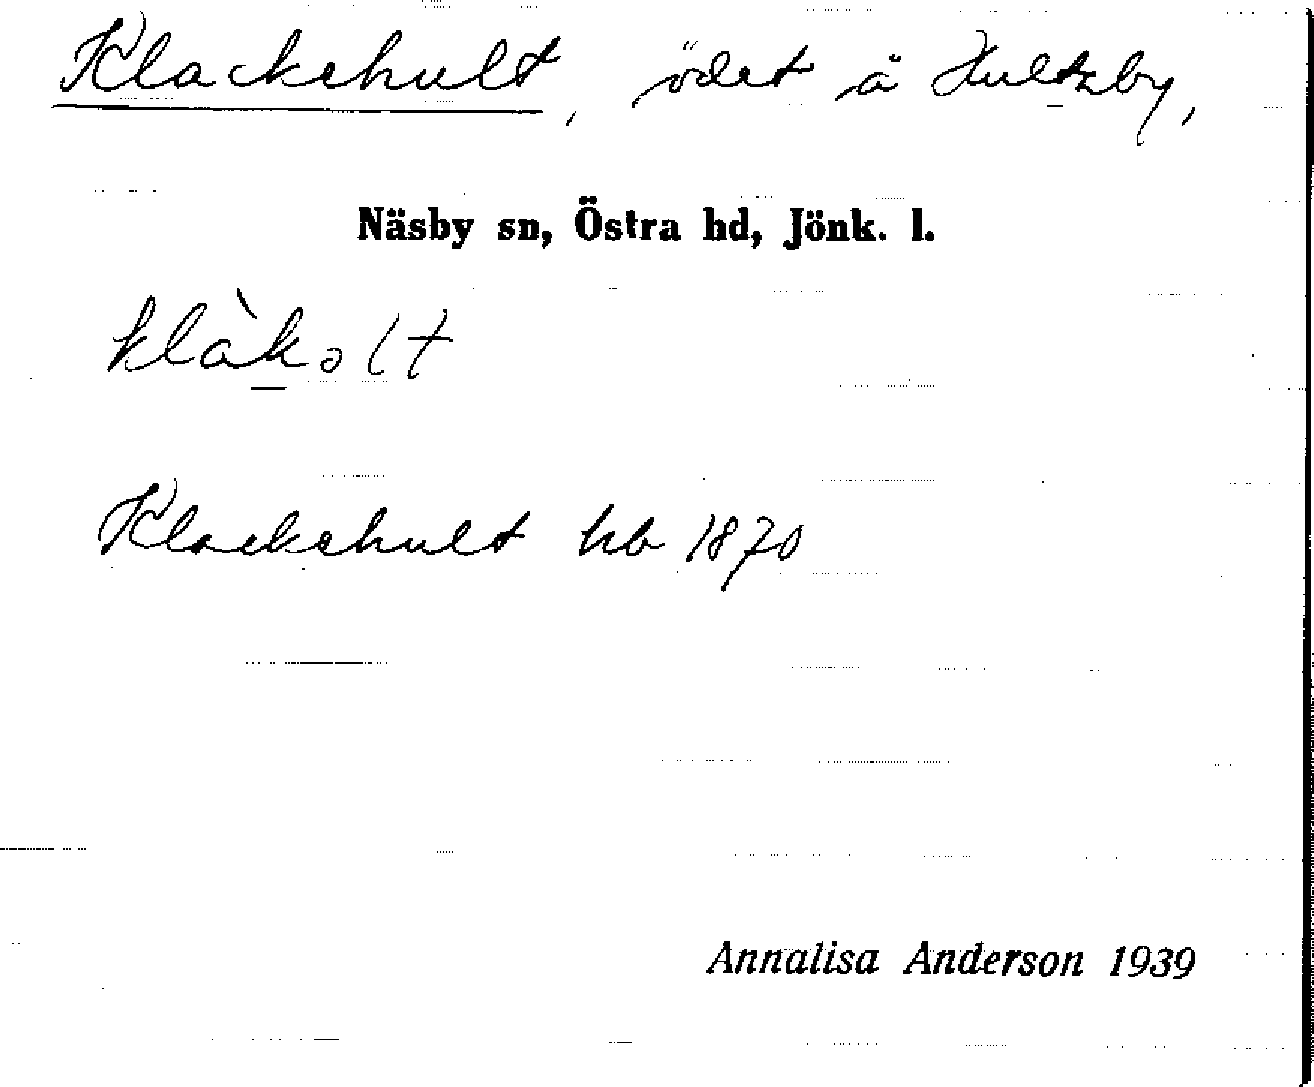 Klackehult, ödet å Hultzby,
Näsby sn, Östra hd, Jönk. l.
klàkolt
Klackehult hb 1870
Annalisa Anderson 1939